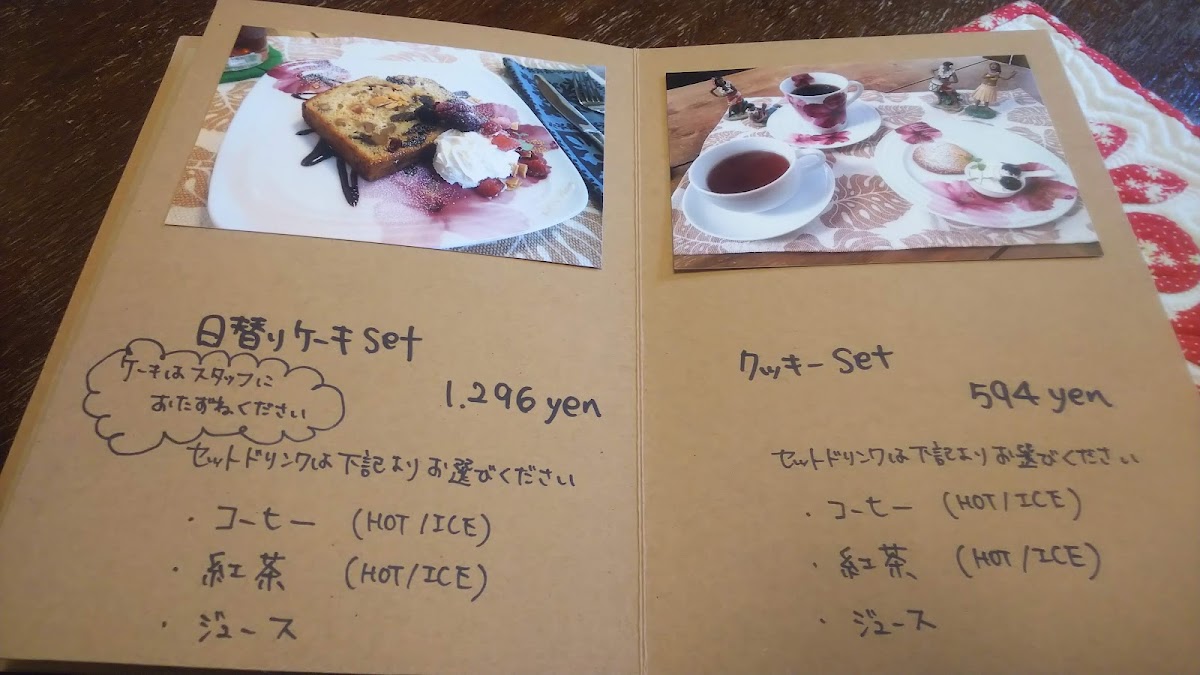 日替りケーキset
ケーキはスタッフに
おたずねください
1.296 yen
セットドリンクは下記よりお選びください
・コーヒー (HOT/ICE)
・紅茶 (HOT/ICE)
・ジュース
クッキーset
594 yen
セットドリンクは下記よりお選びください
・コーヒー (HOT/ICE)
・紅茶 (HOT/ICE)
・ジュース